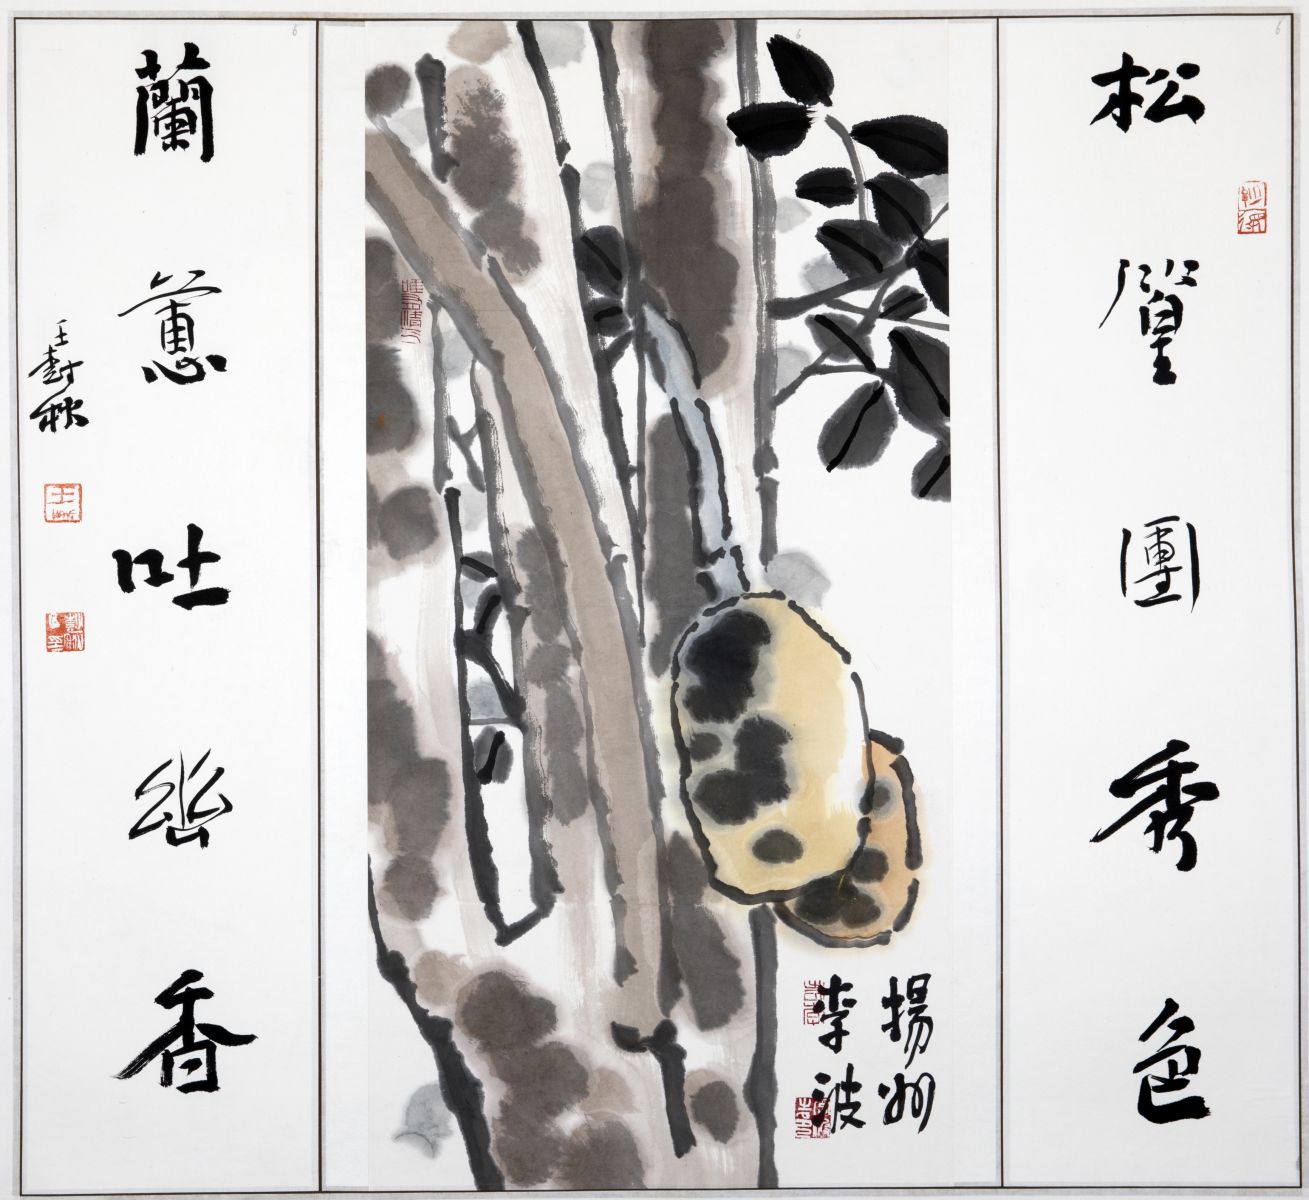 松篁團秀色
揚州
李波
蘭蕙吐幽香
王封秋